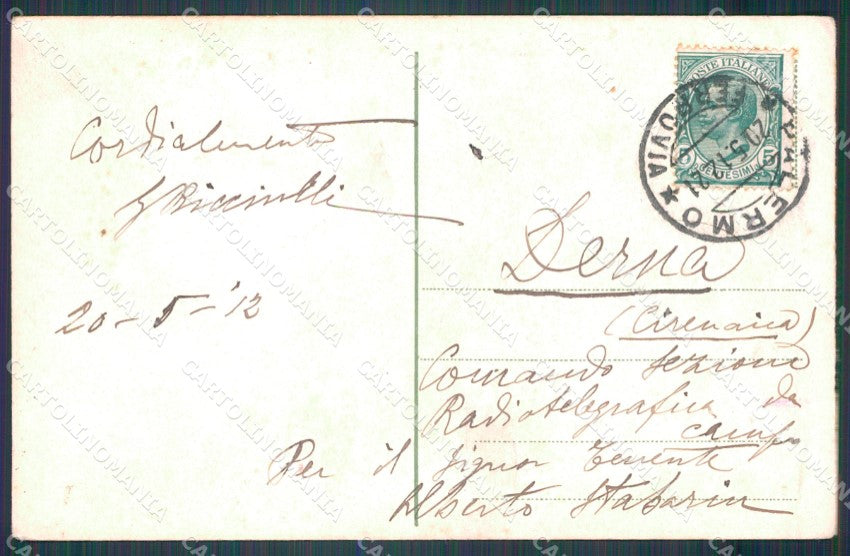 Cordialmente
Riccinelli
20 - 5 - '12
POSTE ITALIANE
5 CENTESIMI 5
PALERMO
FERROVIA
Derna
(Cirenaica)
Comando sezione
Radiotelegrafica da
campo
Per il signor tenente
Alberto
CARTOLINOMANIA